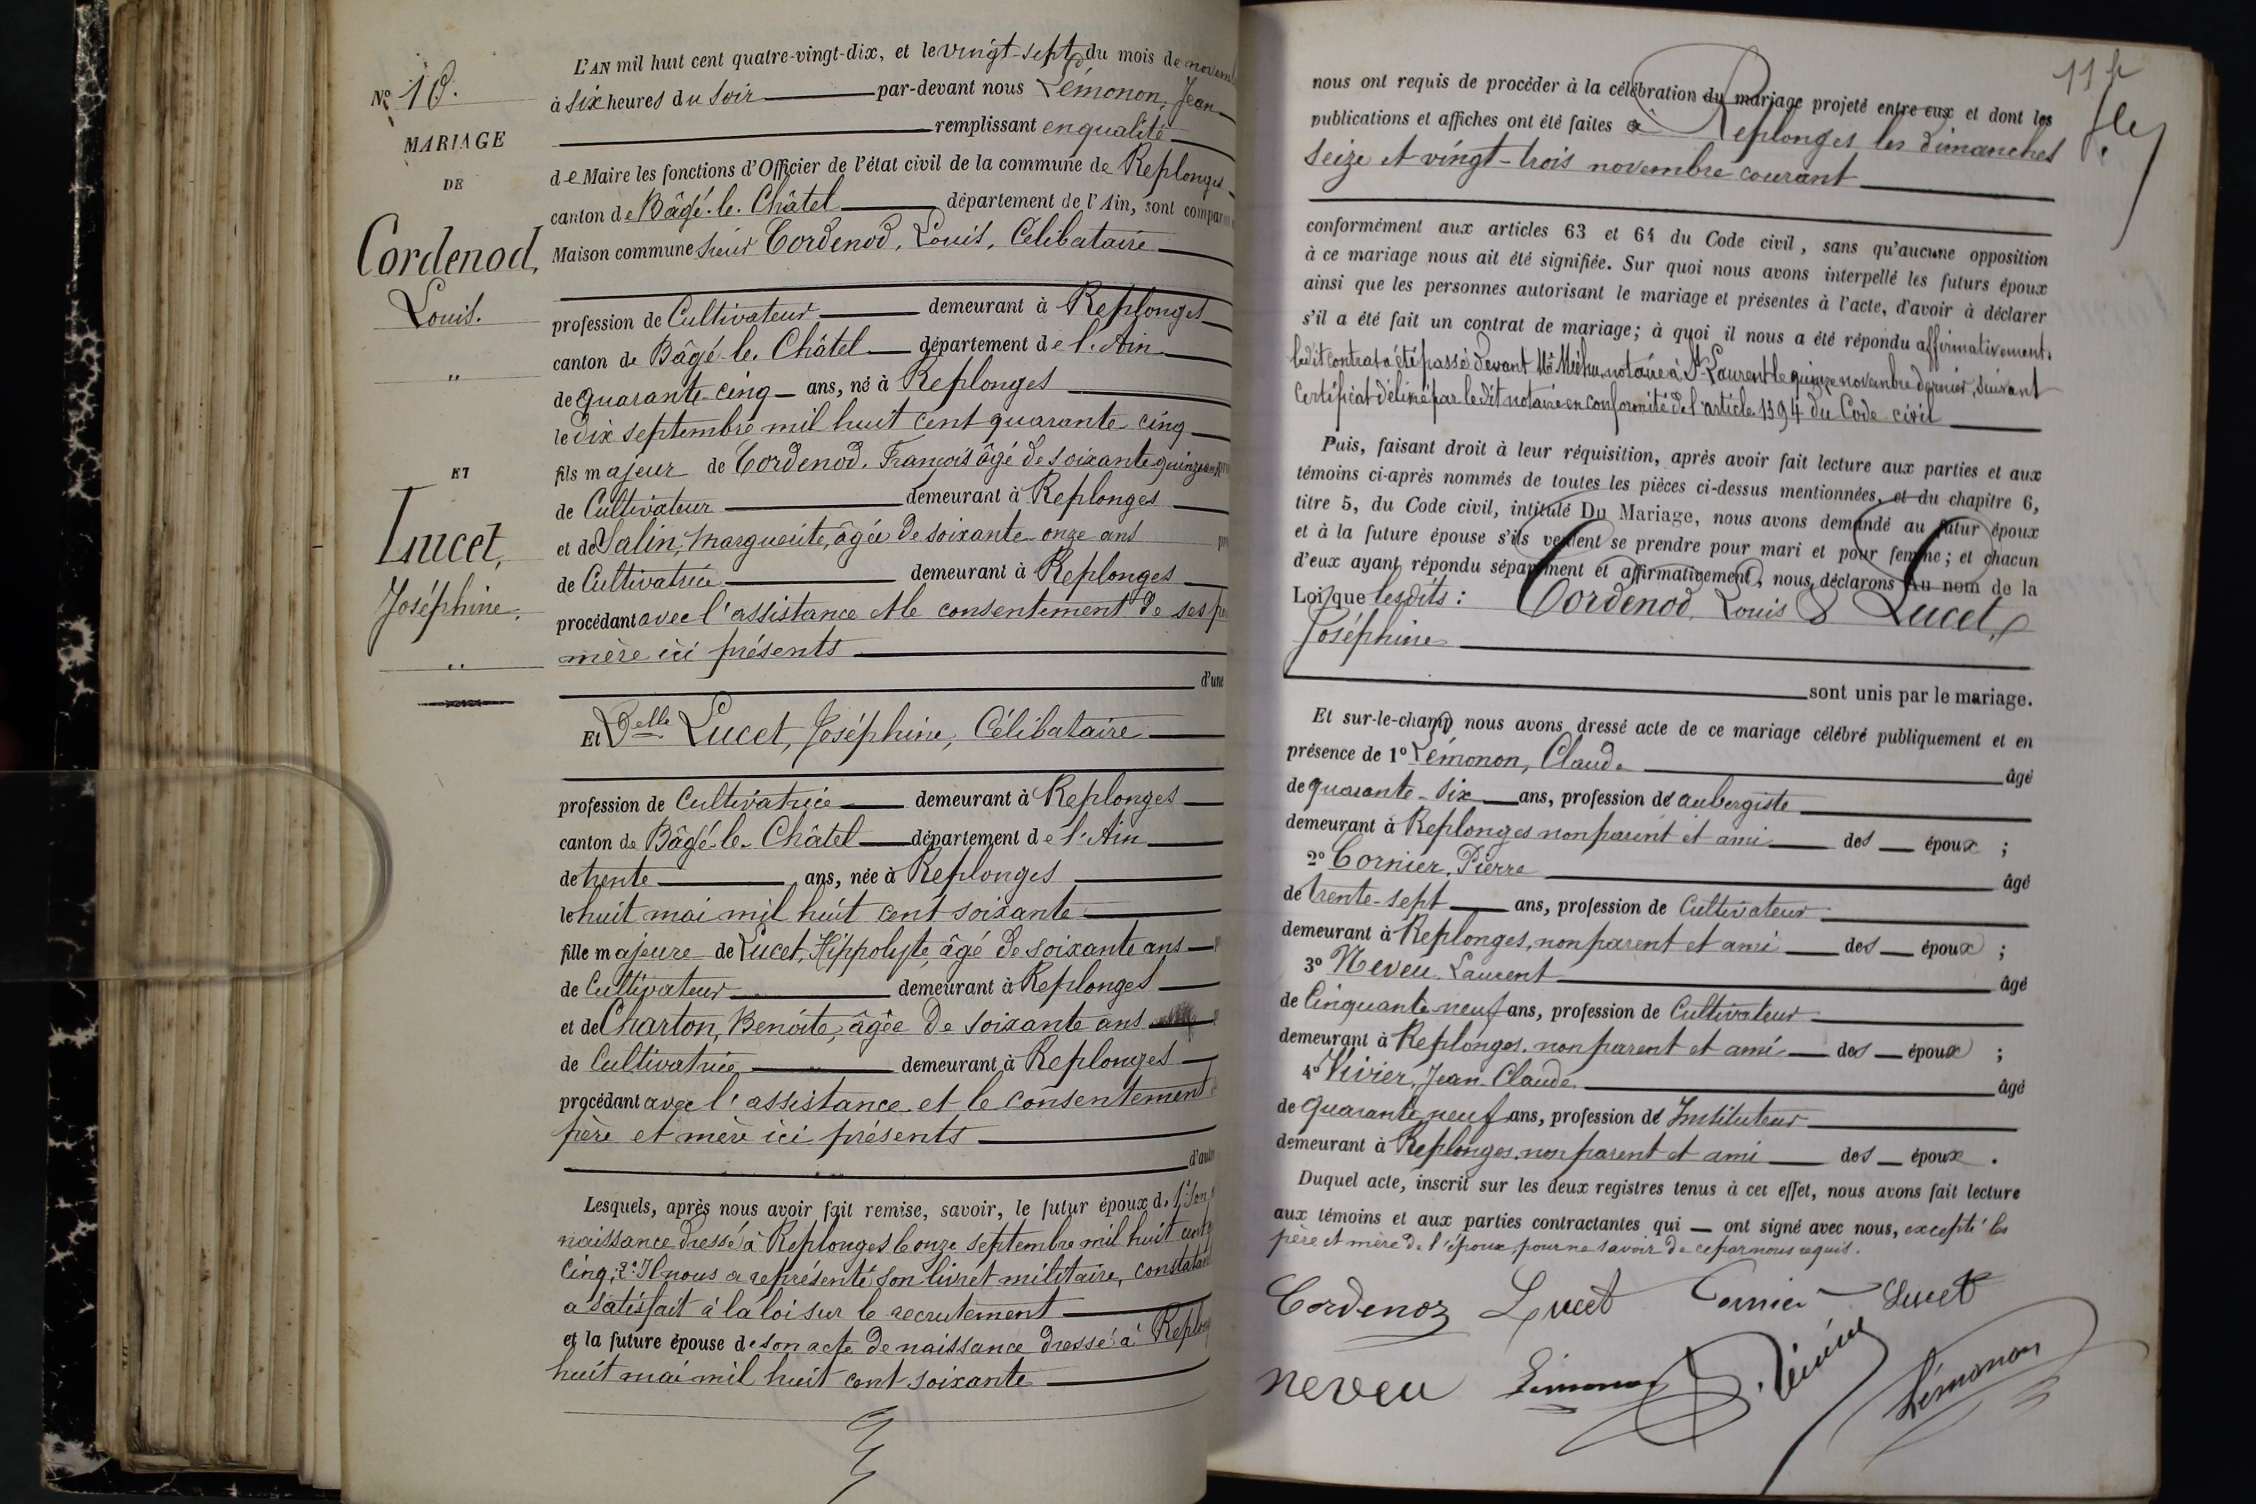 L'AN mil huit cent quatre-vingt-dix, et le vingt-sept du mois de novem
à six heures du soir par-devant nous Lémonon, Jean
remplissant en qualité
de Maire les fonctions d'Officier de l'état civil de la commune de Replonges
canton de Bâgé-le-Châtel département de l'Ain, sont compar
Maison commune sieur Cordenod, Louis, Célibataire
profession de Cultivateur demeurant à Replonges
canton de Bâgé-le-Châtel département de l'Ain
de quarante-cinq ans, né à Replonges
le dix septembre mil huit cent quarante cinq
fils majeur de Cordenod, François âgé de soixante quinze ans
de Cultivateur demeurant à Replonges
et de Salin, Marguerite, âgée de soixante onze ans
de Cultivatrice demeurant à Replonges
procédant avec l'assistance et le consentement de ses
mère ici présents
d'une
Nº 16.
MARIAGE
DE
Cordenod,
Louis.
"
ET
Lucet,
Joséphine.
"
Et Delle Lucet, Joséphine, Célibataire
profession de Cultivatrice demeurant à Replonges
canton de Bâgé-le-Châtel département de l'Ain
de trente ans, née à Replonges
le huit mai mil huit cent soixante
fille majeure de Lucet, Hippolyte, âgé de soixante ans
de Cultivateur demeurant à Replonges
et de Charton, Benoite, âgée de soixante ans
de Cultivatrice demeurant à Replonges
procédant avec l'assistance et le consentement
père et mère ici présents
d'autre
Lesquels, après nous avoir fait remise, savoir, le futur époux de 1º son
naissance dressé à Replonges le onze septembre mil huit cent
cinq; 2º Il nous a représenté son livret militaire, constatant
a satisfait à la loi sur le recrutement
et la future épouse de son acte de naissance dressé à Replong
huit mai mil huit cent soixante
nous ont requis de procéder à la célébration du mariage projeté entre eux et dont les
publications et affiches ont été faites à Replonges les dimanches
seize et vingt-trois novembre courant
conformément aux articles 63 et 64 du Code civil, sans qu'aucune opposition
à ce mariage nous ait été signifiée. Sur quoi nous avons interpellé les futurs époux
ainsi que les personnes autorisant le mariage et présentes à l'acte, d'avoir à déclarer
s'il a été fait un contrat de mariage; à quoi il nous a été répondu affirmativement.
ledit contrat a été passé devant Me Méhu, notaire à St Laurent le quinze novembre dernier, suivant
Certificat délivré par ledit notaire en conformité de l'article 1394 du Code civil
Puis, faisant droit à leur réquisition, après avoir fait lecture aux parties et aux
témoins ci-après nommés de toutes les pièces ci-dessus mentionnées, et du chapitre 6,
titre 5, du Code civil, intitulé Du Mariage, nous avons demandé au futur époux
et à la future épouse s'ils veulent se prendre pour mari et pour femme; et chacun
d'eux ayant répondu séparément et affirmativement, nous déclarons Au nom de la
Loi que lesdits: Cordenod, Louis & Lucet,
Joséphine
sont unis par le mariage.
Et sur-le-champ nous avons dressé acte de ce mariage célébré publiquement et en
présence de 1º Lémonon, Claude âgé
de quarante-six ans, profession de aubergiste
demeurant à Replonges non parent et ami des époux ;
2º Cornier, Pierre âgé
de trente-sept ans, profession de Cultivateur
demeurant à Replonges, non parent et ami des époux ;
3º Neveu, Laurent âgé
de Cinquante neuf ans, profession de Cultivateur
demeurant à Replonges, non parent et ami des époux ;
4º Vivier, Jean Claude âgé
de quarante neuf ans, profession de Instituteur
demeurant à Replonges, non parent et ami des époux .
Duquel acte, inscrit sur les deux registres tenus à cet effet, nous avons fait lecture
aux témoins et aux parties contractantes qui ont signé avec nous, excepté les
père et mère de l'époux pour ne savoir de ce par nous requis.
Cordenoz Lucet Cornier Lucet
neveu Lémonon J. Vivier Lémonon